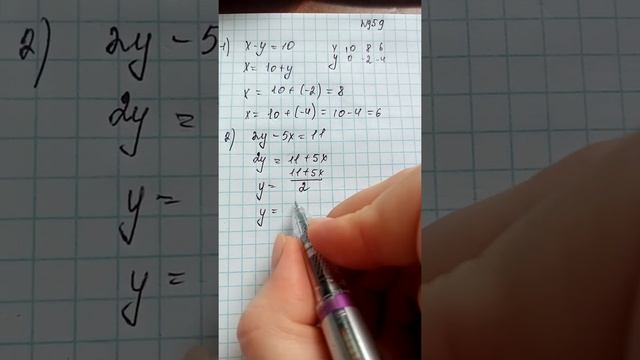 №959
1) x-y=10
x 10 8 6
y 0 -2 -4
x = 10+y
x = 10+(-2) = 8
x = 10+(-4) = 10-4 = 6
2) 2y-5x=11
2y = 11+5x
y = 11+5x
2
y =
2) 2y-5
2y =
y =
y =